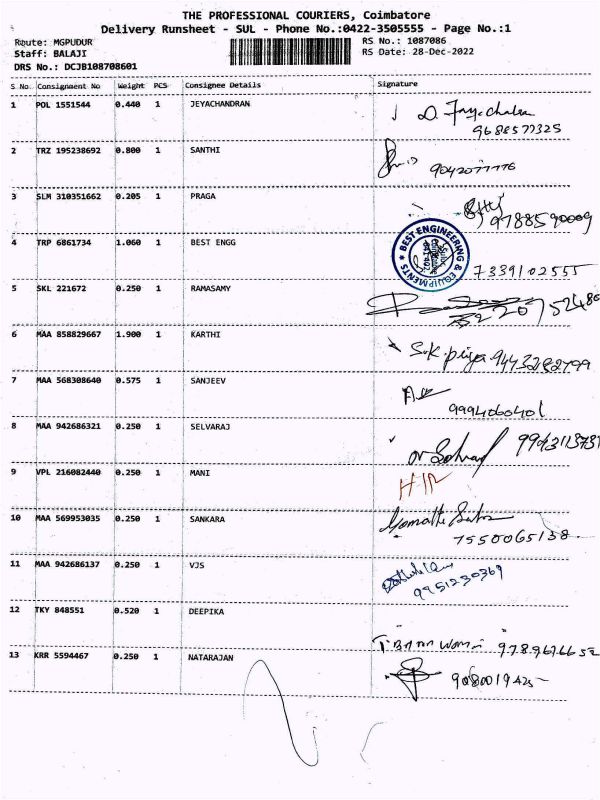 THE PROFESSIONAL COURIERS, Coimbatore
Delivery Runsheet - SUL - Phone No.:0422-3505555 - Page No.:1
Route: MGPUDUR RS No.: 1087086
Staff: BALAJI RS Date: 28-Dec-2022
DRS No.: DCJB108708601
S No. Consignment No Weight PCS Consignee Details Signature
1 POL 1551544 0.440 1 JEYACHANDRAN
9688577325
2 TRZ 195238692 0.800 1 SANTHI
3 SLM 310351662 0.205 1 PRAGA
9788590009
4 TRP 6861734 1.060 1 BEST ENGG BEST ENGINEERING & EQUIPMENTS
7339102555
5 SKL 221672 0.250 1 RAMASAMY
6 MAA 858829667 1.900 1 KARTHI
S.K.priya
7 MAA 568308640 0.575 1 SANJEEV
9994060401
8 MAA 942686321 0.250 1 SELVARAJ
9 VPL 216082440 0.250 1 MANI
10 MAA 569953035 0.250 1 SANKARA
7550065138
11 MAA 942686137 0.250 1 VJS
9951230369
12 TKY 848551 0.520 1 DEEPIKA
13 KRR 5594467 0.250 1 NATARAJAN
9080019425